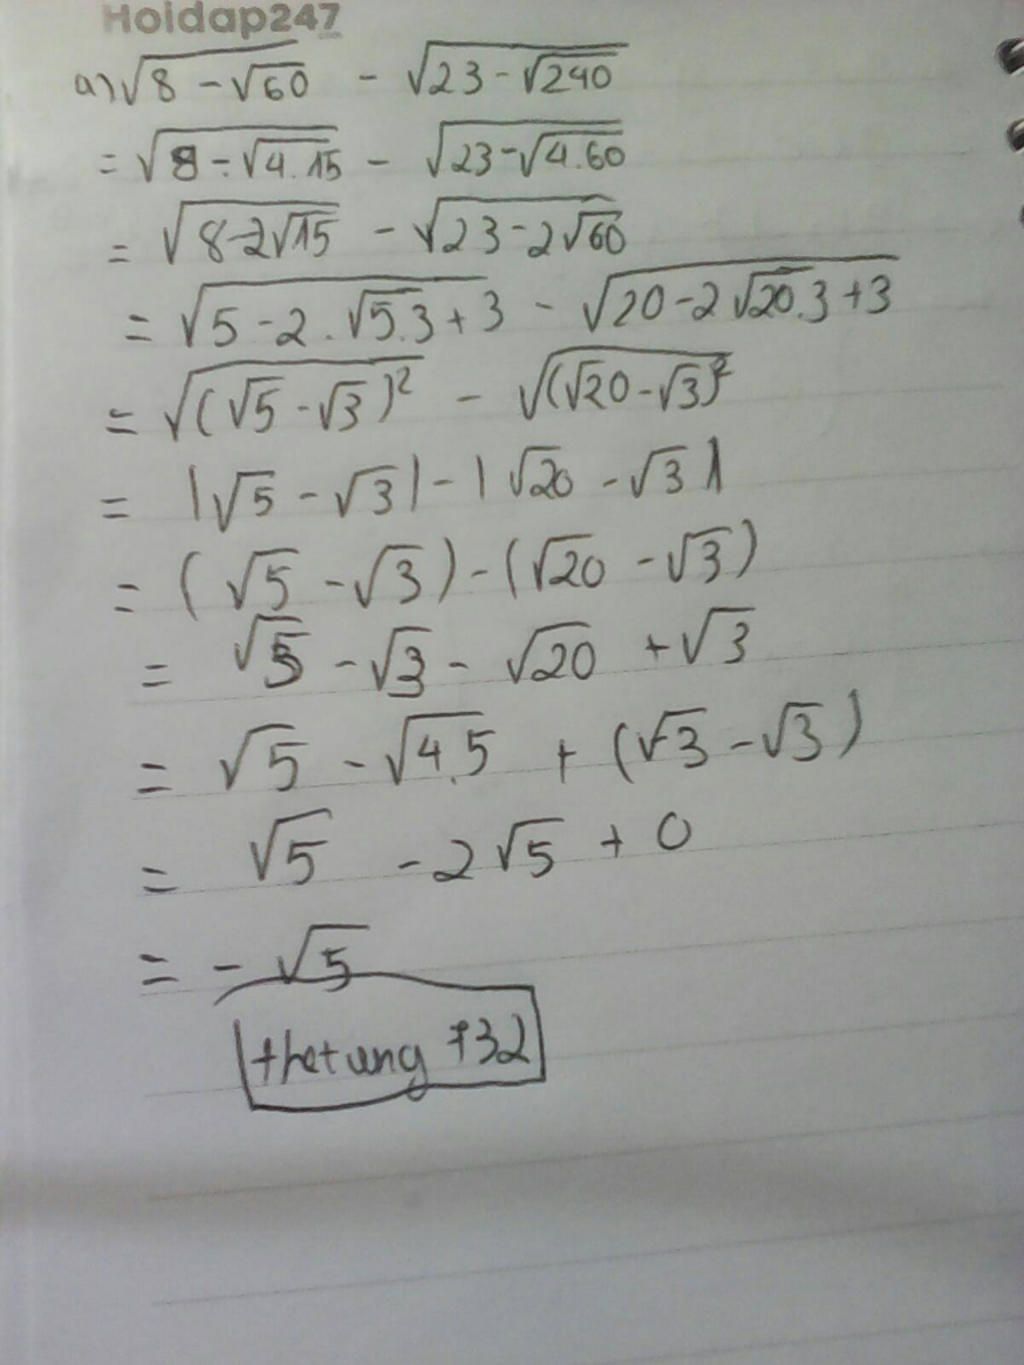 Hoidap247
a) √(8 - √60) - √(23 - √240)
= √(8 - √(4.15)) - √(23 - √(4.60))
= √(8 - 2√15) - √(23 - 2√60)
= √(5 - 2.√(5.3) + 3) - √(20 - 2√(20.3) + 3)
= √((√5 - √3)²) - √((√20 - √3)²)
= |√5 - √3| - |√20 - √3|
= (√5 - √3) - (√20 - √3)
= √5 - √3 - √20 + √3
= √5 - √(4.5) + (√3 - √3)
= √5 - 2√5 + 0
= - √5